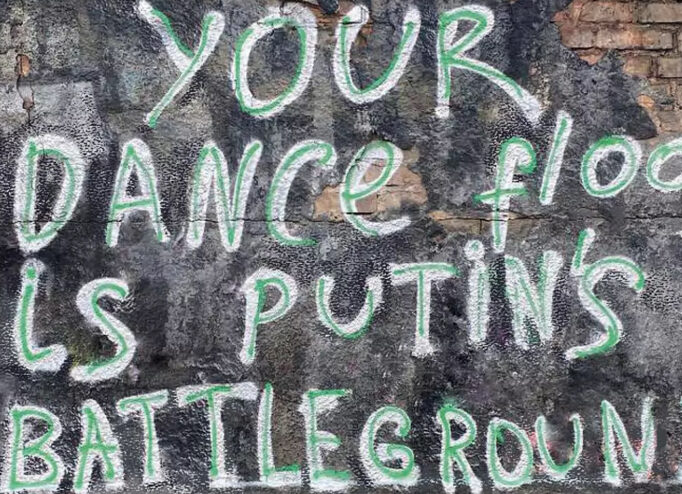 YOUR
DANCE floo
is PUTiN'S
BATTLEGROUN